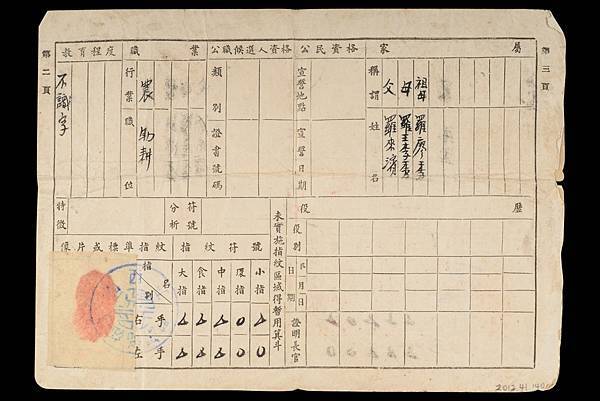 第三頁
家屬
稱謂
姓名
祖母
羅廖李
母
羅王李
父
羅來
公民資格
宣誓地點
宣誓日期
公職候選人資格
類別
證書號碼
職業
行業
職位
農
教育程度
不識字
第二頁
役歷
役別
年月日
日期
證明長官
未實施指紋區域得暫用箕斗
符號
分析
特徵
像片或標準指紋
指紋符號
指名
指別
大指
食指
中指
環指
小指
右手
△
△
△
○
○
左手
△
△
△
△
○
2012.41.140